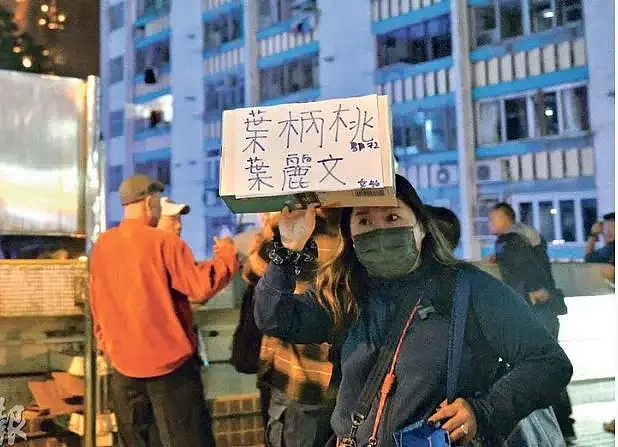 葉柄桃
葉麗文
報